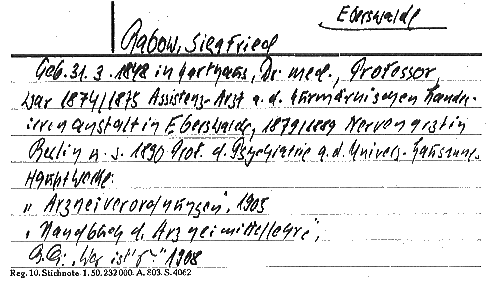 Eberswalde
Rabow, Siegfried
Geb. 31. 3. 1848 in Carthaus, Dr. med., Professor,
war 1874/1875 Assistenz-Arzt a. d. kurmärkischen Landes-
irrenanstalt in Eberswalde, 1879/1889 Nervenarzt in
Berlin u. s. 1890 Prof. d. Psychiatrie a. d. Univers. Lausanne
Hauptwerke:
"Arzneiverordnungen", 1905
"Handbuch d. Arzneimittellehre",
"Wer ist's" 1908
Reg. 10. Stichnote 1. 50. 232000. A. 803. S. 4062